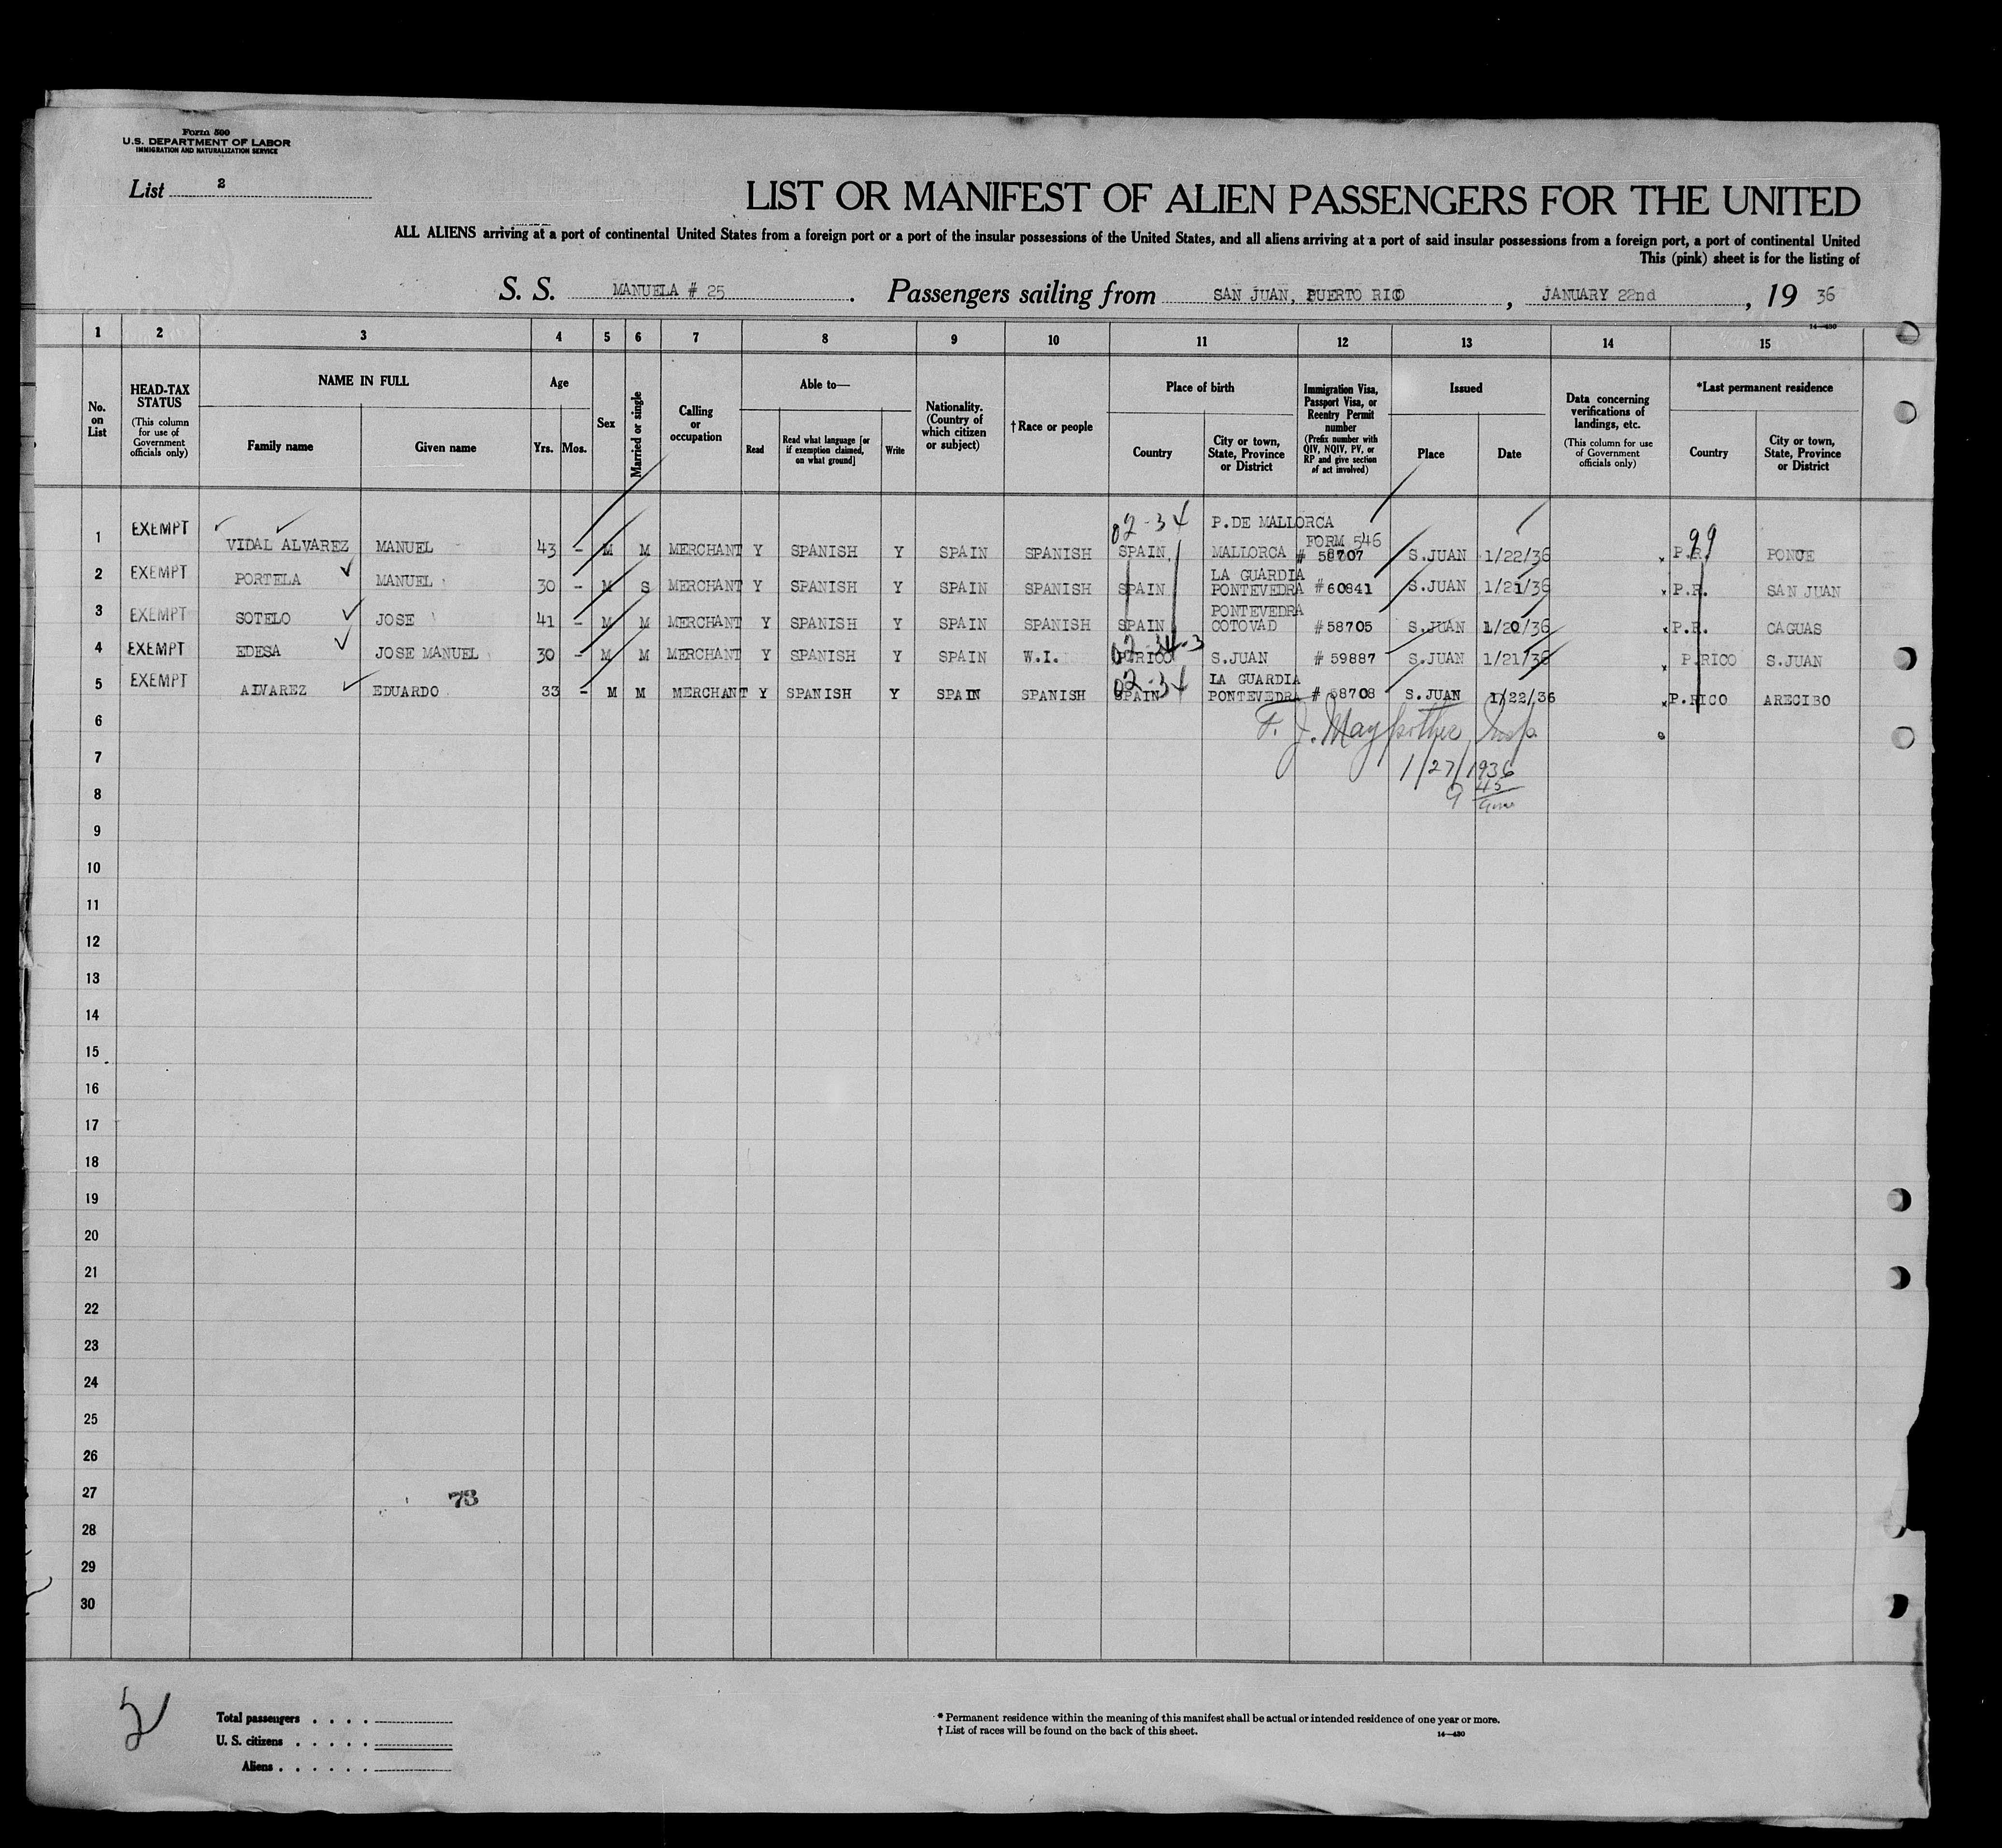 Form 500
U.S. DEPARTMENT OF LABOR
IMMIGRATION AND NATURALIZATION SERVICE
List 2
LIST OR MANIFEST OF ALIEN PASSENGERS FOR THE UNITED
ALL ALIENS arriving at a port of continental United States from a foreign port or a port of the insular possessions of the United States, and all aliens arriving at a port of said insular possessions from a foreign port, a port of continental United
This (pink) sheet is for the listing of
S. S. MANUELA # 25. Passengers sailing from SAN JUAN, PUERTO RICO, JANUARY 22nd, 19 36
14—430
1 2 3 4 5 6 7 8 9 10 11 12 13 14 15
No. on List
HEAD-TAX STATUS (This column for use of Government officials only)
NAME IN FULL
Family name
Given name
Age
Yrs. Mos.
Sex
Married or single
Calling or occupation
Able to—
Read
Read what language [or if exemption claimed, on what ground]
Write
Nationality. (Country of which citizen or subject)
†Race or people
Place of birth
Country
City or town, State, Province or District
Immigration Visa, Passport Visa, or Reentry Permit number (Prefix number with QIV, NQIV, PV, or RP and give section of act involved)
Issued
Place
Date
Data concerning verifications of landings, etc. (This column for use of Government officials only)
*Last permanent residence
Country
City or town, State, Province or District
02-34 P.DE MALLORCA FORM 546 99
1 EXEMPT VIDAL ALVAREZ MANUEL 43 - M M MERCHANT Y SPANISH Y SPAIN SPANISH SPAIN MALLORCA # 58707 S.JUAN 1/22/36 P.R. PONCE
LA GUARDIA
2 EXEMPT PORTELA MANUEL 30 - M S MERCHANT Y SPANISH Y SPAIN SPANISH SPAIN PONTEVEDRA #60841 S.JUAN 1/21/36 P.R. SAN JUAN
PONTEVEDRA
3 EXEMPT SOTELO JOSE 41 - M M MERCHANT Y SPANISH Y SPAIN SPANISH SPAIN COTOVAD #58705 S.JUAN 1/20/36 P.R. CAGUAS
4 EXEMPT EDESA JOSE MANUEL 30 - M M MERCHANT Y SPANISH Y SPAIN W.I. P.RICO S.JUAN # 59887 S.JUAN 1/21/36 P.RICO S.JUAN
02-34 LA GUARDIA
5 EXEMPT ALVAREZ EDUARDO 33 - M M MERCHANT Y SPANISH Y SPAIN SPANISH SPAIN PONTEVEDRA # 58708 S.JUAN 1/22/36 P.RICO ARECIBO
6
7 1/27/1936
8 9 45
9
10
11
12
13
14
15
16
17
18
19
20
21
22
23
24
25
26
27 73
28
29
30
Total passengers
U. S. citizens
Aliens
* Permanent residence within the meaning of this manifest shall be actual or intended residence of one year or more.
† List of races will be found on the back of this sheet.
14—430